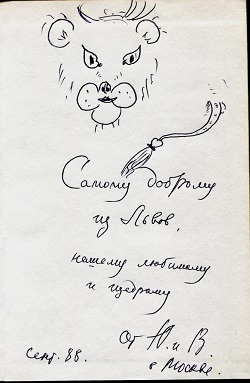 Самому доброму
из Львов,
нашему любимому
и щедрому
От Ю. и В.
Сент. 88.
в Москве.